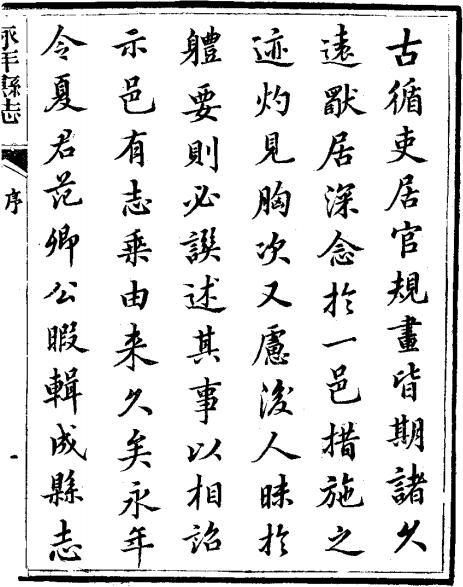 古循吏居官規畫皆期諸久
遠猷居深念於一邑措施之
迹灼見胸次又慮後人昧於
體要則必譔述其事以相詔
示邑有志乘由来久矣永年
令夏君范卿公暇輯成縣志
永年縣志
序